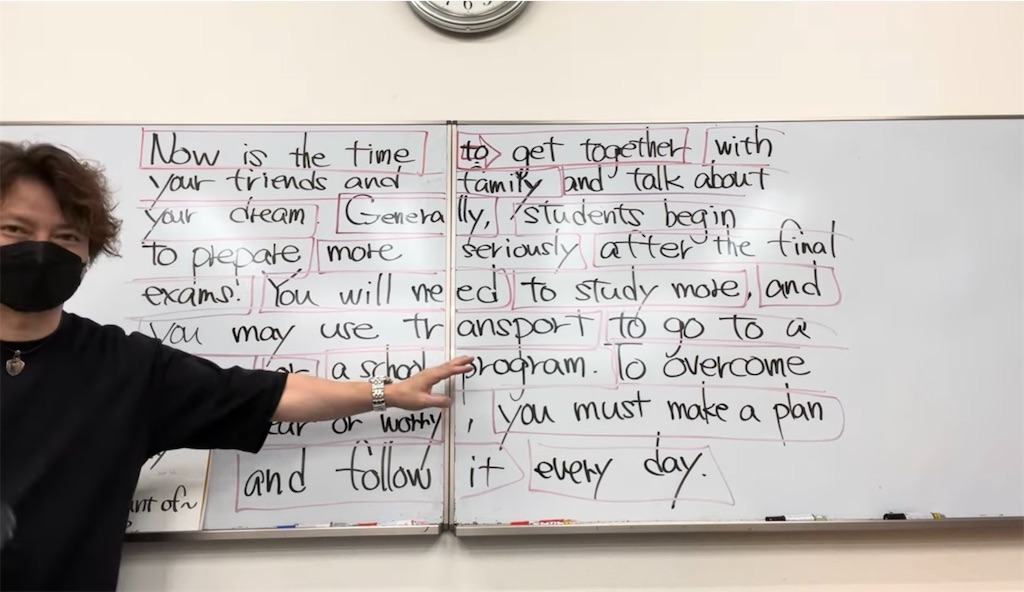 Now is the time to get together with
your friends and family and talk about
your dream. Generally, students begin
to prepare more seriously after the final
exams. You will need to study more, and
you may use transport to go to a
a school program. To overcome
or worry, you must make a plan
and follow it every day.
ant of~